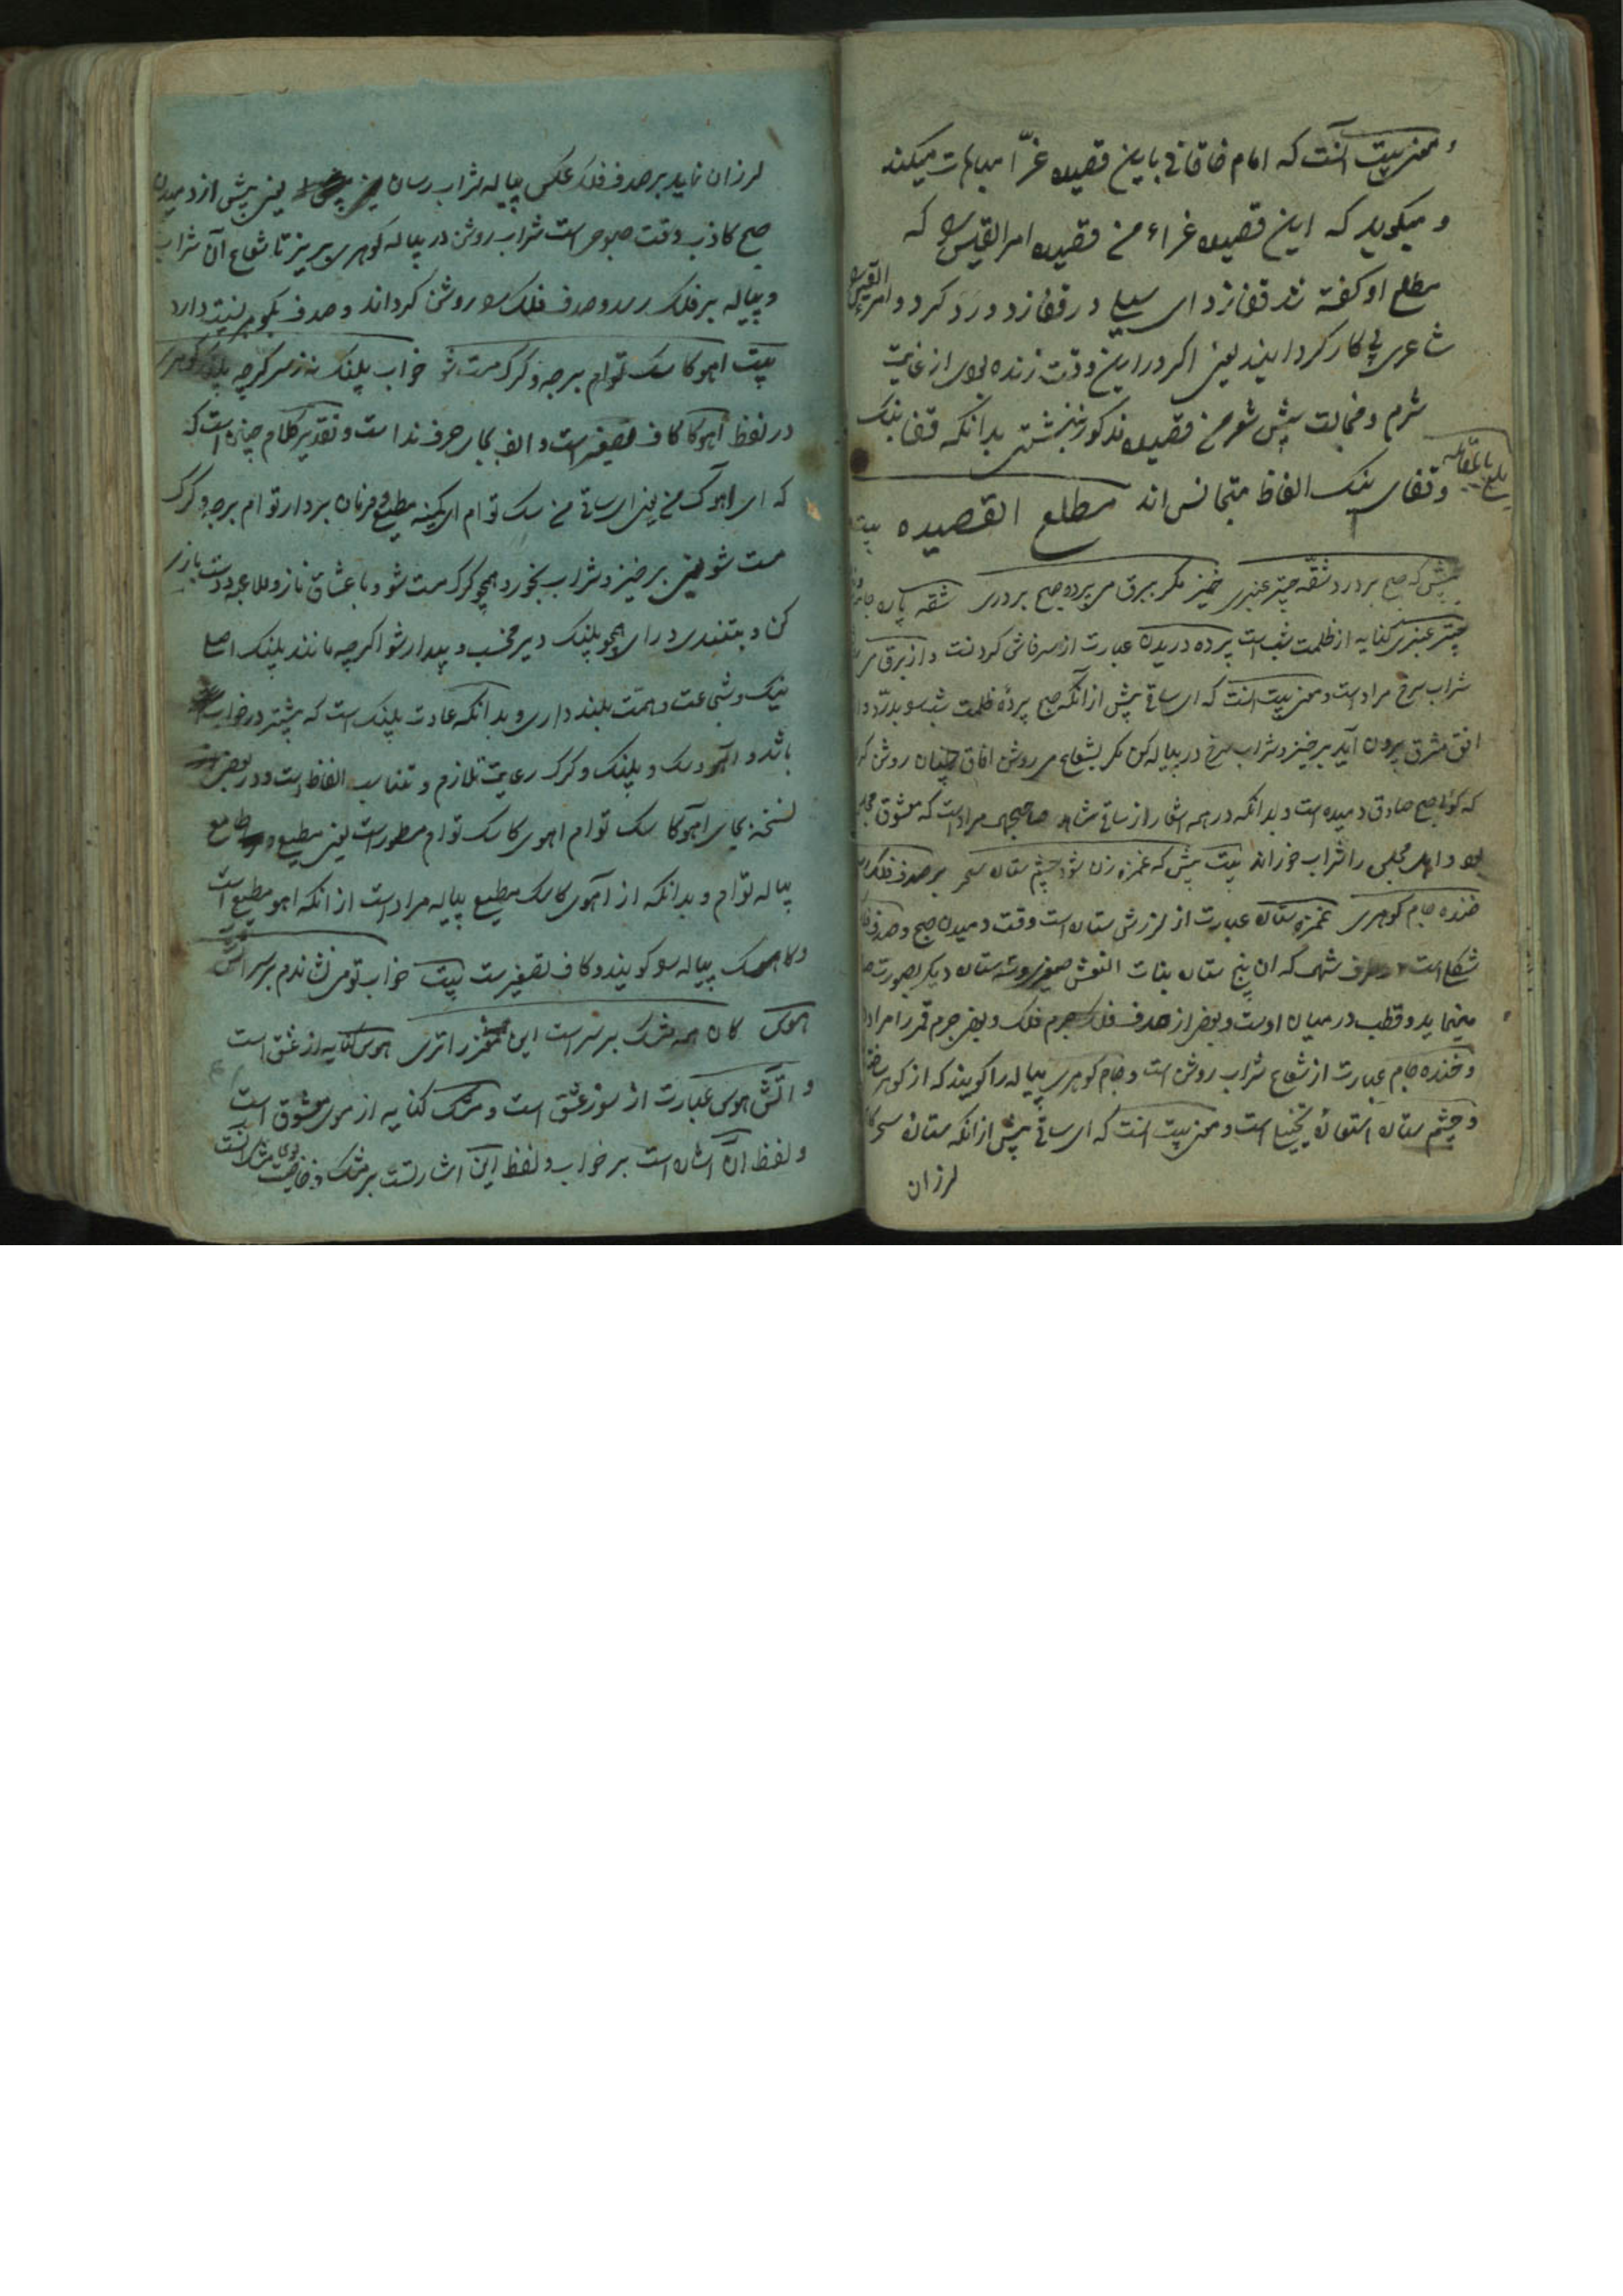 و معنی بیت آنست که امام خاقانی باین قصیده غرّا مباهات میکند
و میکوید که این قصیده غراء من قصیده امرالقیس را که
مطلع او کفته شد قفا زد ای سیلی در قفا زد و رد کرد و امرء القیس را
شاعری پی کار کردانید یعنی اکر در این وقت زنده بودی از غایت
شرم و خجالت پیش شعر من قصیده مذکور ننبشتی بدانکه قفا نبک
و قفای نیک الفاظ متجانس اند مطلع القصیده بیت
بلغ مقابله
پیش که صبح بر درد شقّه چتر عنبری خیز مکر ببرق می برده صبح بر دری شقه پاره جامه
چتر عنبری کنایه از ظلمت شب است پرده دریدن عبارت از سر فاش کردنست و از برق می
شراب سرخ مراد است و معنی بیت آنست که ای ساقی پیش از آنکه صبح پردهٔ ظلمت شب را بدرّد و از
افق مشرق بیرون آید برخیز و شراب سرخ در پیاله کن مکر بشعاع می روشن آفاق چنان روشن کر
که کوئی صبح صادق دمیده است و بدانکه در همه اشعار از ساقی شاهد صاحبجمال مراد است که معشوق مجلس
بود و اهل مجلس را شراب خوراند بیت پیش که غمزه زن شود چشم ستاره سحر بر صدف فلک رسان
خنده جام کوهری غمزه ستاره عبارت از لرزش ستاره است وقت دمیدن صبح و صدف فلک
شکلی است در طرف شمال که ان پنج ستاره بنات النعش صغری و سه ستاره دیکر بصورت صدف
مینماید و قطب در میان اوست و بعضی از صدف فلک جرم فلک و بعضی جرم قمر را مراد دا
و خنده جام عبارت از شعاع شراب روشن است و جام کوهری پیاله را کویند که از کوهر ساخته
و چشم ستاره استعارهٔ تخییلی است و معنی بیت آنست که ای ساقی پیش از آنکه ستارهٔ سحر کا
لرزان
لرزان نماید بر صدف فلک عکس پیاله شراب رسان یعنی پیش از دمیدن
صبح کاذب وقت صبوحی است شراب روشن در پیاله کوهری بریز تا شعاع آن شراب
و پیاله بر فلک رسد و صدف فلک را روشن کرداند و صدف بکوهر نسبت دارد
بیت آهوکا سک توام برجه و کرک مست شو خواب پلنک نه ز سر کرچه پلنک کوهری
در لفظ آهوکا کاف تصغیر است و الف بجای حرف ندا است و تقدیر کلام چنان است که
که ای آهوک من یعنی ای ساقی من سک توام ای کمینه مطیع و فرمان بردار توام برجه و کرک
مست شو یعنی برخیز و شراب بخور و همچو کرک مست شو و با عشاق ناز و ملاعبه و دست بازی
کن و بتندی در ای همچو پلنک دیر مخسب و بیدار شو اکرچه مانند پلنک اصل
نیک و شجاعت و همّت بلند داری و بدانکه عادت پلنک است که بیشتر در خواب
باشد و آهو و سک و پلنک و کرک رعایت تلازم و تناسب الفاظ است و در بعض
نسخه بجای آهوکا سک توام اهوی کاسک توام مسطور است یعنی مطیع و طامع
پیاله توام و بدانکه از آهوی کاسک مطیع پیاله مراد است از انکه اهو مطیع است
و کاسک پیاله را کویند و کاف تصغیر است بیت خواب تو می نشاندم بر سر آتش
هوس کان همه مشک بر سر است این همه مغز را تری هوس کنایه از عشق است
و آتش هوس عبارت از سوز عشق است و مشک کنایه از موی معشوق است
و لفظ آن اشاره است بر خواب و لفظ این اشارتست بر مشک و خاصیت بوی مشک آنست